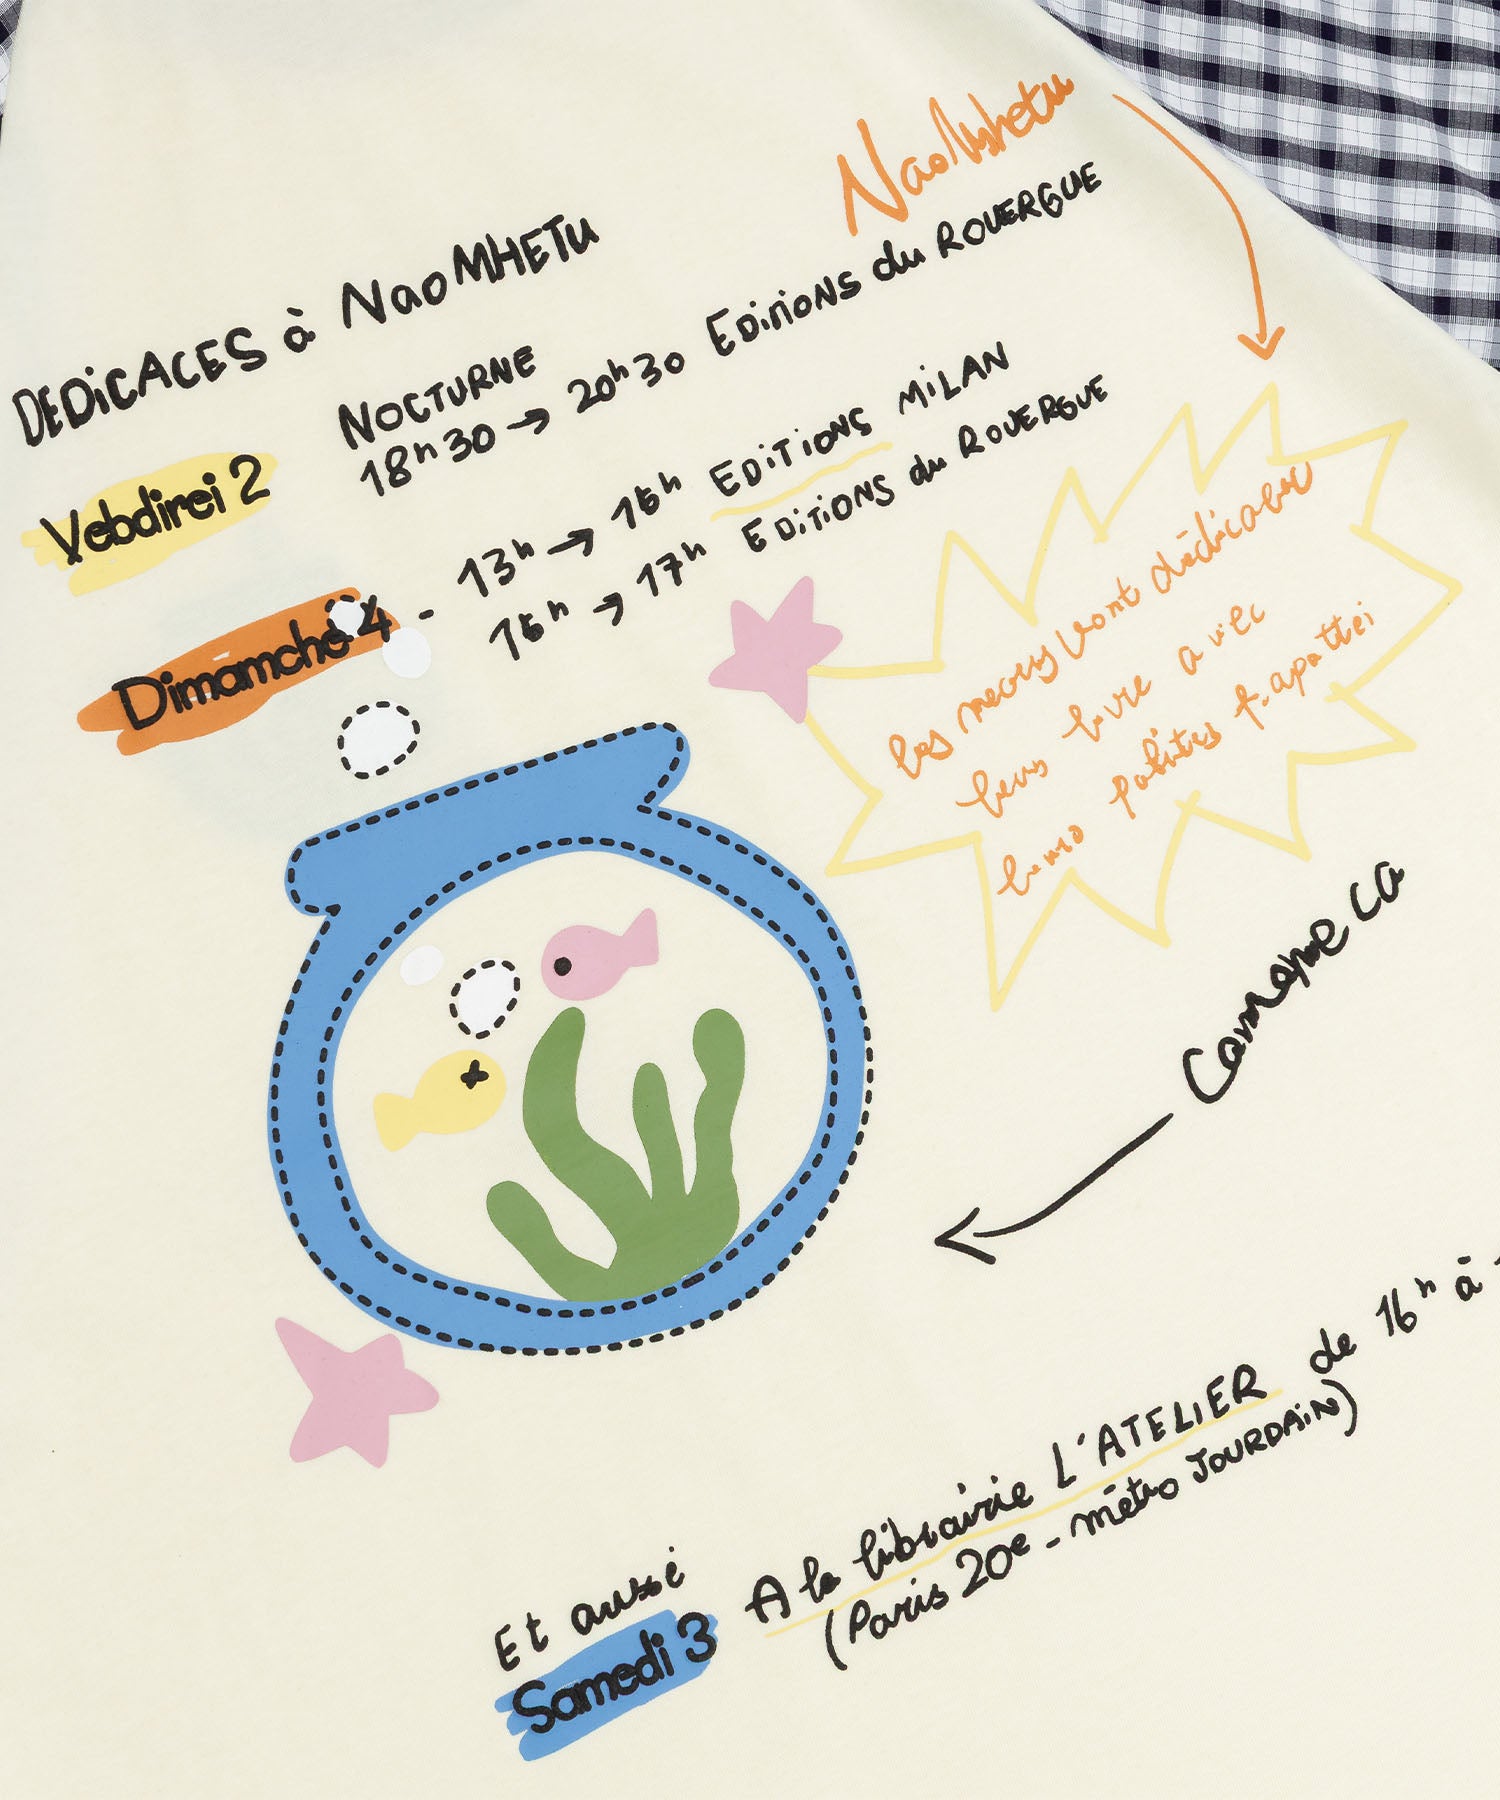 NaoMhetu
DEDiCACES à NaoMHETu
NOCTURNE
Vebdirei 2
18h30 → 20h30 EDitiONS du ROUERGUE
Dimamche 4 - 13h → 16h EDiTiONS MiLAN
16h → 17h EDiTiONS du ROUERGUE
les meous vont dédicacer
leus livre avec
patites t.apattei
Camempe CA
Et aussi
Samedi 3 A la librairie L'ATELIER de 16h à
(Paris 20e - métro JOURDAiN)